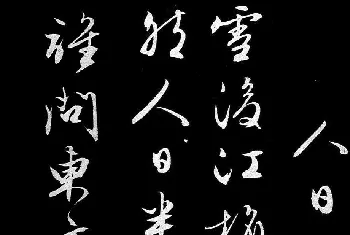 人日
雪後江
然人日
誰問東